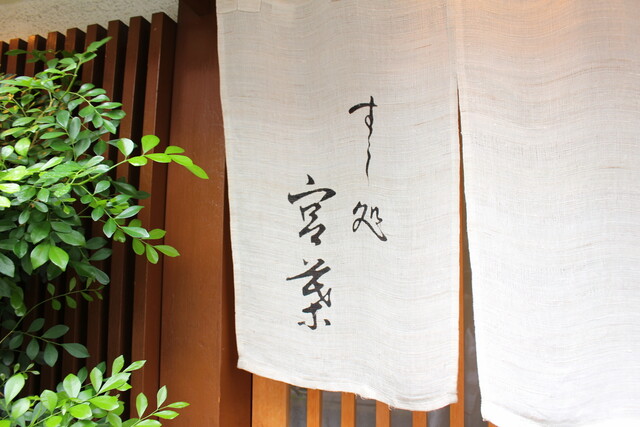 すし処
宮葉